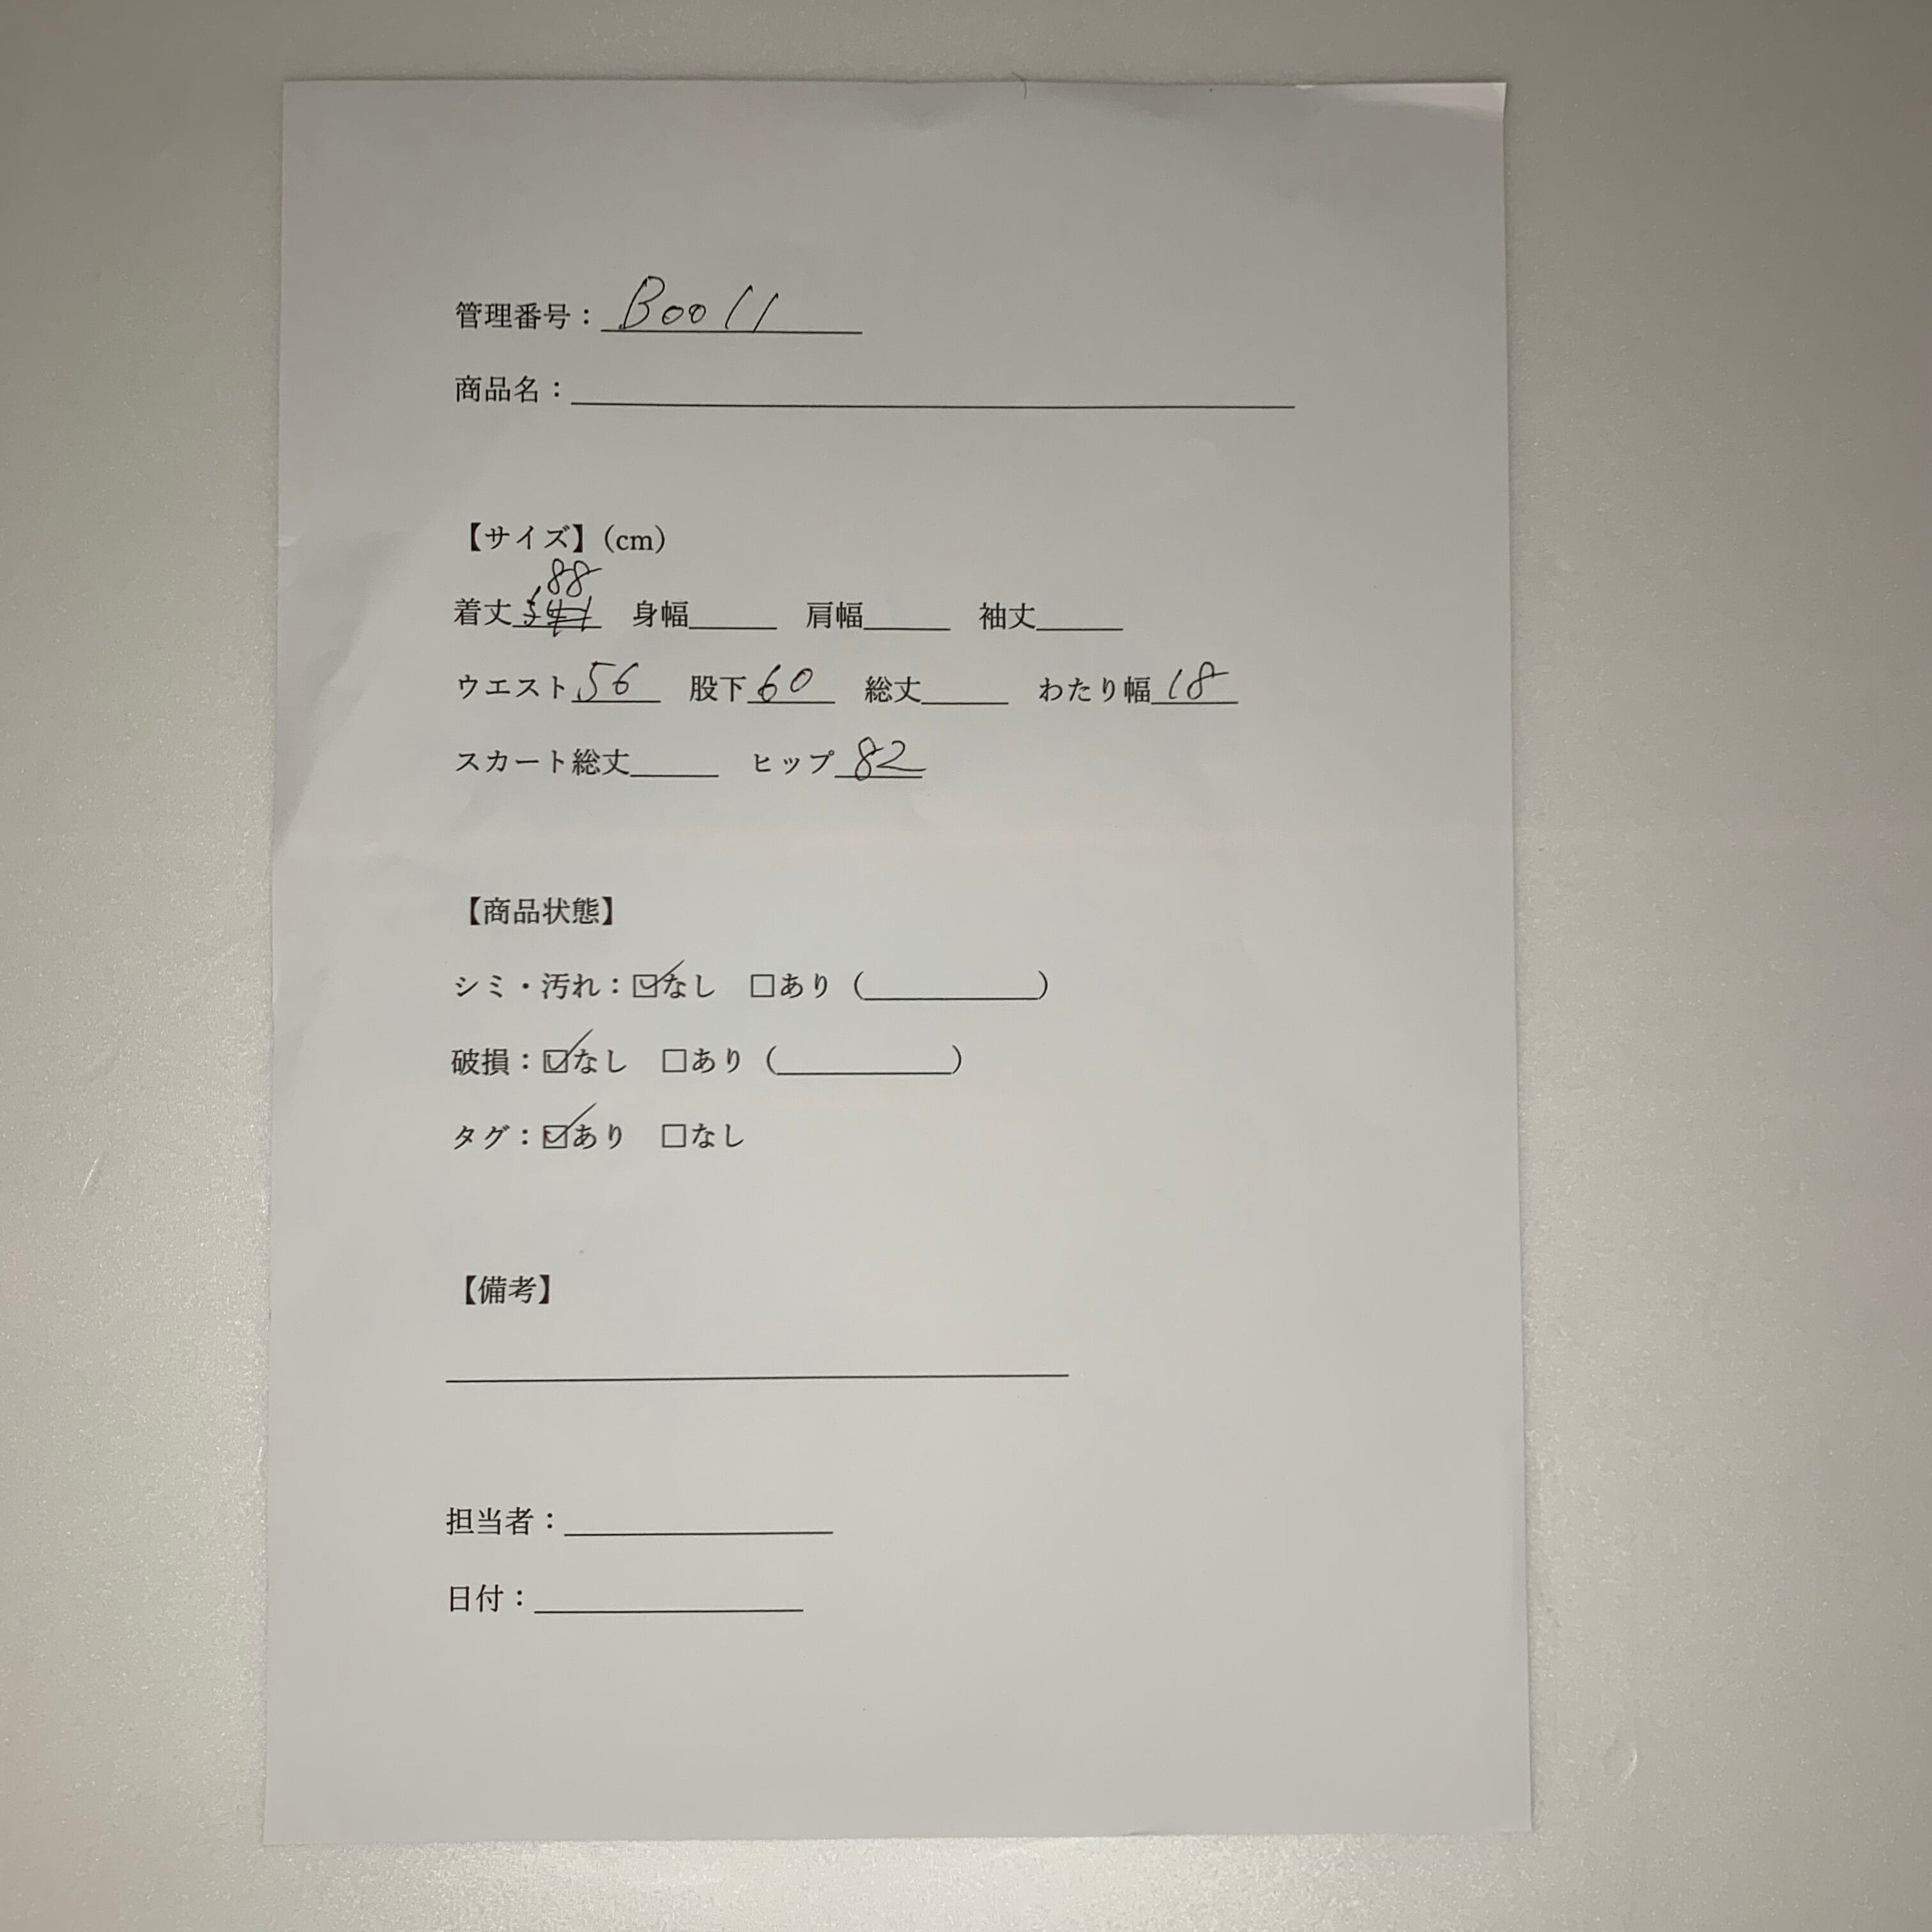 管理番号：B0011
商品名：
【サイズ】(cm)
88
着丈 身幅 肩幅 袖丈
ウエスト56 股下60 総丈 わたり幅18
スカート総丈 ヒップ82
【商品状態】
シミ・汚れ：☑なし □あり（ ）
破損：☑なし □あり（ ）
タグ：☑あり □なし
【備考】
担当者：
日付：